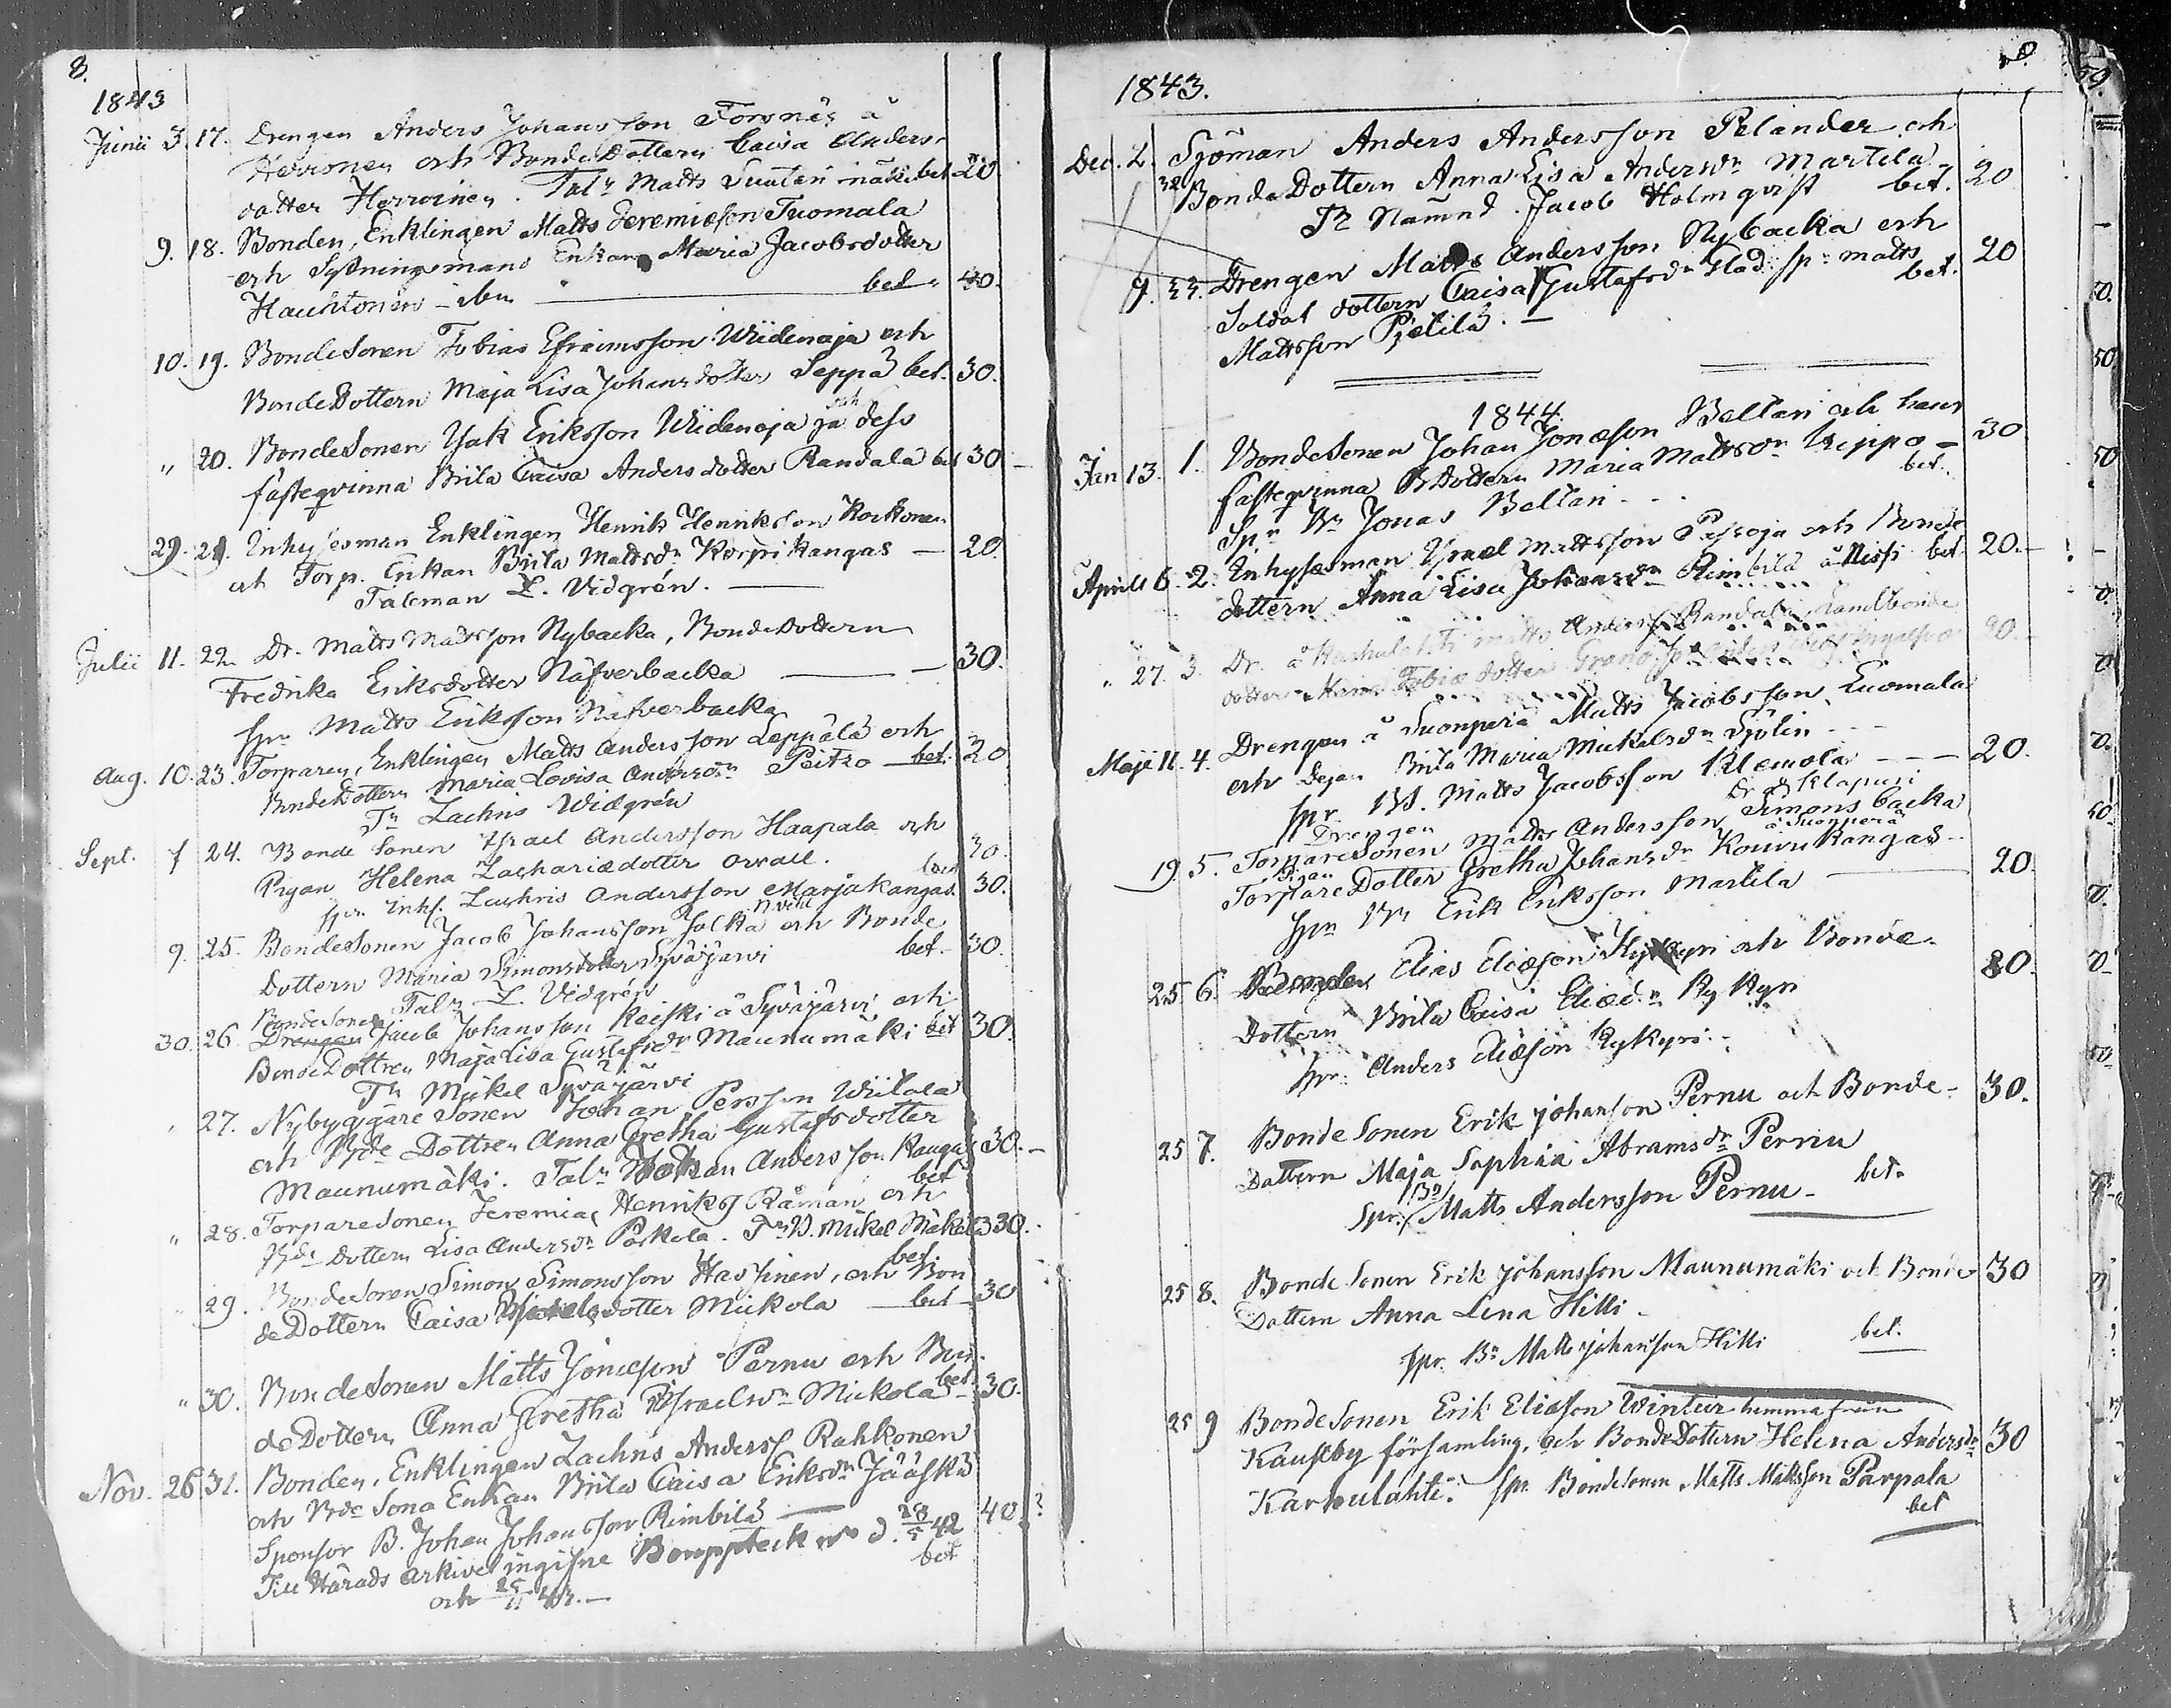 8.
1843
Junii 3. 17. Drengen Anders Johansson Forsnäs å
Herronen och BondeDottern Caisa Anders-
dotter Herroinen. Talm Matts Suutari bet 20.
9. 18. Bonden, Enklingen Matts Jeremiæson Tuomala
och Sytningsmans Enkan Maria Jacobsdotter
Hauhtonen bet 40.
10. 19. BondeSonen Tobias Efraimsson Wiidenoja och
BondeDottern Maja Lisa Johansdotter Seppä bet. 30.
" 20. BondeSonen Isak Eriksson Wiidenoja och dess
fästeqvinna Brita Caisa Andersdotter Randala bet 30
29. 21. Inhysesman Enklingen Henrik Henriksson Korkonen
och Torp. Enkan Brita Mattsdr Korpikangas — 20.
Taleman Z. Vidgrén.
Julii 11. 22. Dr. Matts Mattsson Nybacka, BondeDottern
Fredrika Eriksdotter Näfverbacka — 30.
spr Matts Eriksson Näfverbacka
Aug. 10. 23. Torparen, Enklingen Matts Andersson Leppälä och
BondeDottern Maria Lovisa Andersdr Peitzo bet. 20
Tn Zachris Widgrén
Sept. 7 24. Bonde Sonen Israel Andersson Haapala och 30.
Pigan Helena Zachariædotter Orrall.
spr Inhs. Zachris Andersson Marjakangas. 30.
9. 25. BondeSonen Jacob Johansson Jolkka och Bonde
Dottern Maria Simonsdotter Syväjärvi bet. 30.
Taln Z. Vidgrén
BondeSonen
30. 26. Drengen Jacob Johansson Keiski å Syväjärvi och
BondeDottren Maja Lisa Gustafsdr Maunumäki bet 30.
Tn Mickel Syväjärvi
27. Nybyggare Sonen Johan Persson Wiitala
och Bde Dottren Anna Gretha Gustafsdotter
Maunumäki. Taln Johan Andersson Kangas 30.
bet
" 28. TorpareSonen Jeremias Henriks Råman och
Bde Dottern Lisa Andersdr Parkala. Tn B. Mickel Mäkelä 30.
bet.
29. BondeSonen Simon Simonsson Hassinen, och Bon
deDottern Caisa Mickelsdotter Mickola — bet 30
" 30. BondeSonen Matts Jonæson Pernu och Bon-
deDottern Anna Gretha Israelsdr Mickola bet 30.
Nov. 26 31. Bonden, Enklingen Zachris Anderss Rahkonen
och Bde Sona Enkan Brita Caisa Eriksdr Jääskä
Sponsor B. Johan Johansson Rimbilä — 40 ?
Till Härads arkivet ingifne Bouppteckn d. 28/5 42
och 25/11 43. — bet
1843.
Dec. 2. 32 Sjöman Anders Andersson Pelander och
BondeDottern Anna Lisa Andersdr Martila
Tn Nämnd. Jacob Holmqvist bet. 20
9. 33. Drengen Matts Andersson Nybacka och
Soldat dottern Caisa Gustafsdr Glad. spr Matts 20
Mattsson Pietilä. — bet.
1844.
Jan 13. 1. BondeSonen Johan Jonæson Beltari och hans
fästeqvinna BDottern Maria Mattsdr Wippo — 30
Spr Bn Jonas Beltari bet.
Aprill 6. 2. Inhysesman Israel Mattsson Pasoja och Bonde
dottern Anna Lisa Johansdr Rimbilä å Nissi bet 20.
" 27. 3. Dr. å matts Anderss Randala Landbonde
dotter Maria Tobiæ dotter 20.
Maji 11. 4. Drengen å Suonperä Matts Jacobsson Luomala
och Pigan Brita Maria Mickelsdr Sjölin
spr Bd. Matts Jacobsson Klemola — 20.
Drengen Dr å Klapuri
19. 5. TorpareSonen Matts Andersson Simonsbacka
Pigan å Suonperä
TorpareDotter Gretha Johansdr Kouvukangas
spr Bn Erik Eriksson Martila — 20.
25. 6. Bonden Elias Eliæson Kykyri och Bonde-
Dottern Brita Caisa Eliædr Kykyri 20.
spr. Anders Eliæson Kykyri.
25 7. Bonde Sonen Erik Johanson Pernu och Bonde- 30.
Dottern Maja Sophia Abramsdr Pernu
Spr. Bn Matts Andersson Pernu — bet.
25 8. Bonde Sonen Erik Johansson Maunumäki och Bonde 30
Dottern Anna Lena Hilli
spr. Bn Matts Johansson Hilli bet.
25 9 BondeSonen Erik Eliæson Winter hemma från
Kaustby församling, och BondeDottern Helena Andersdr 30
Karhulahti. spr. BondeSonen Matts Mattsson Parpala
bet